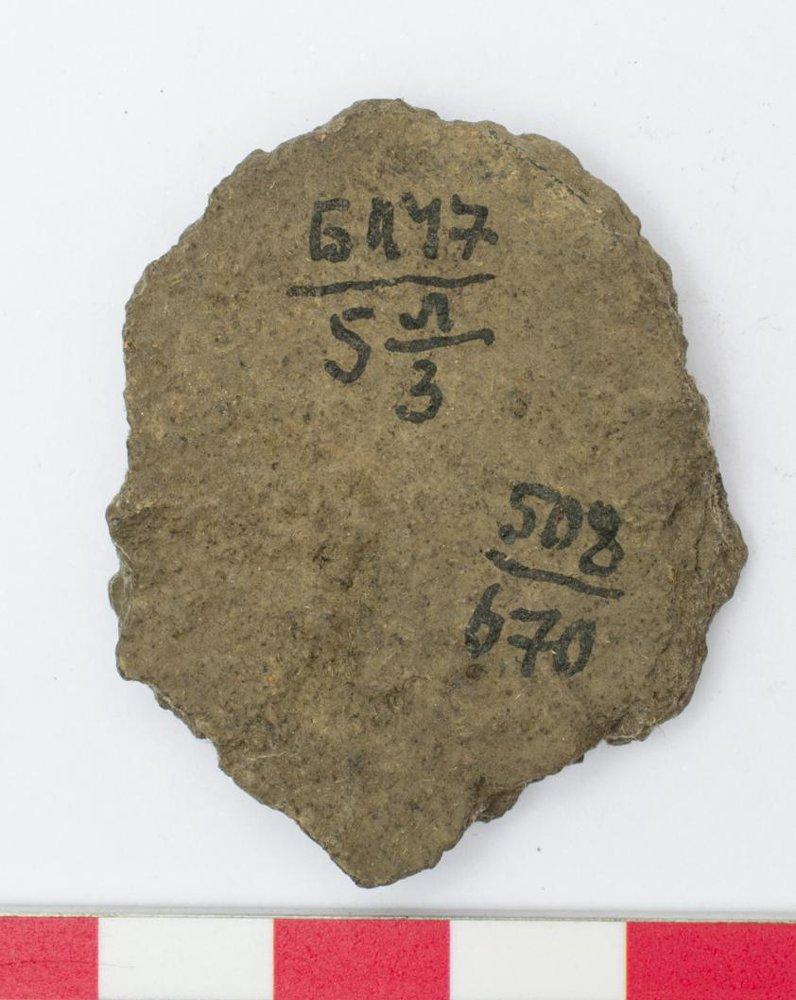 БЛ47
5 Л
3
508
670